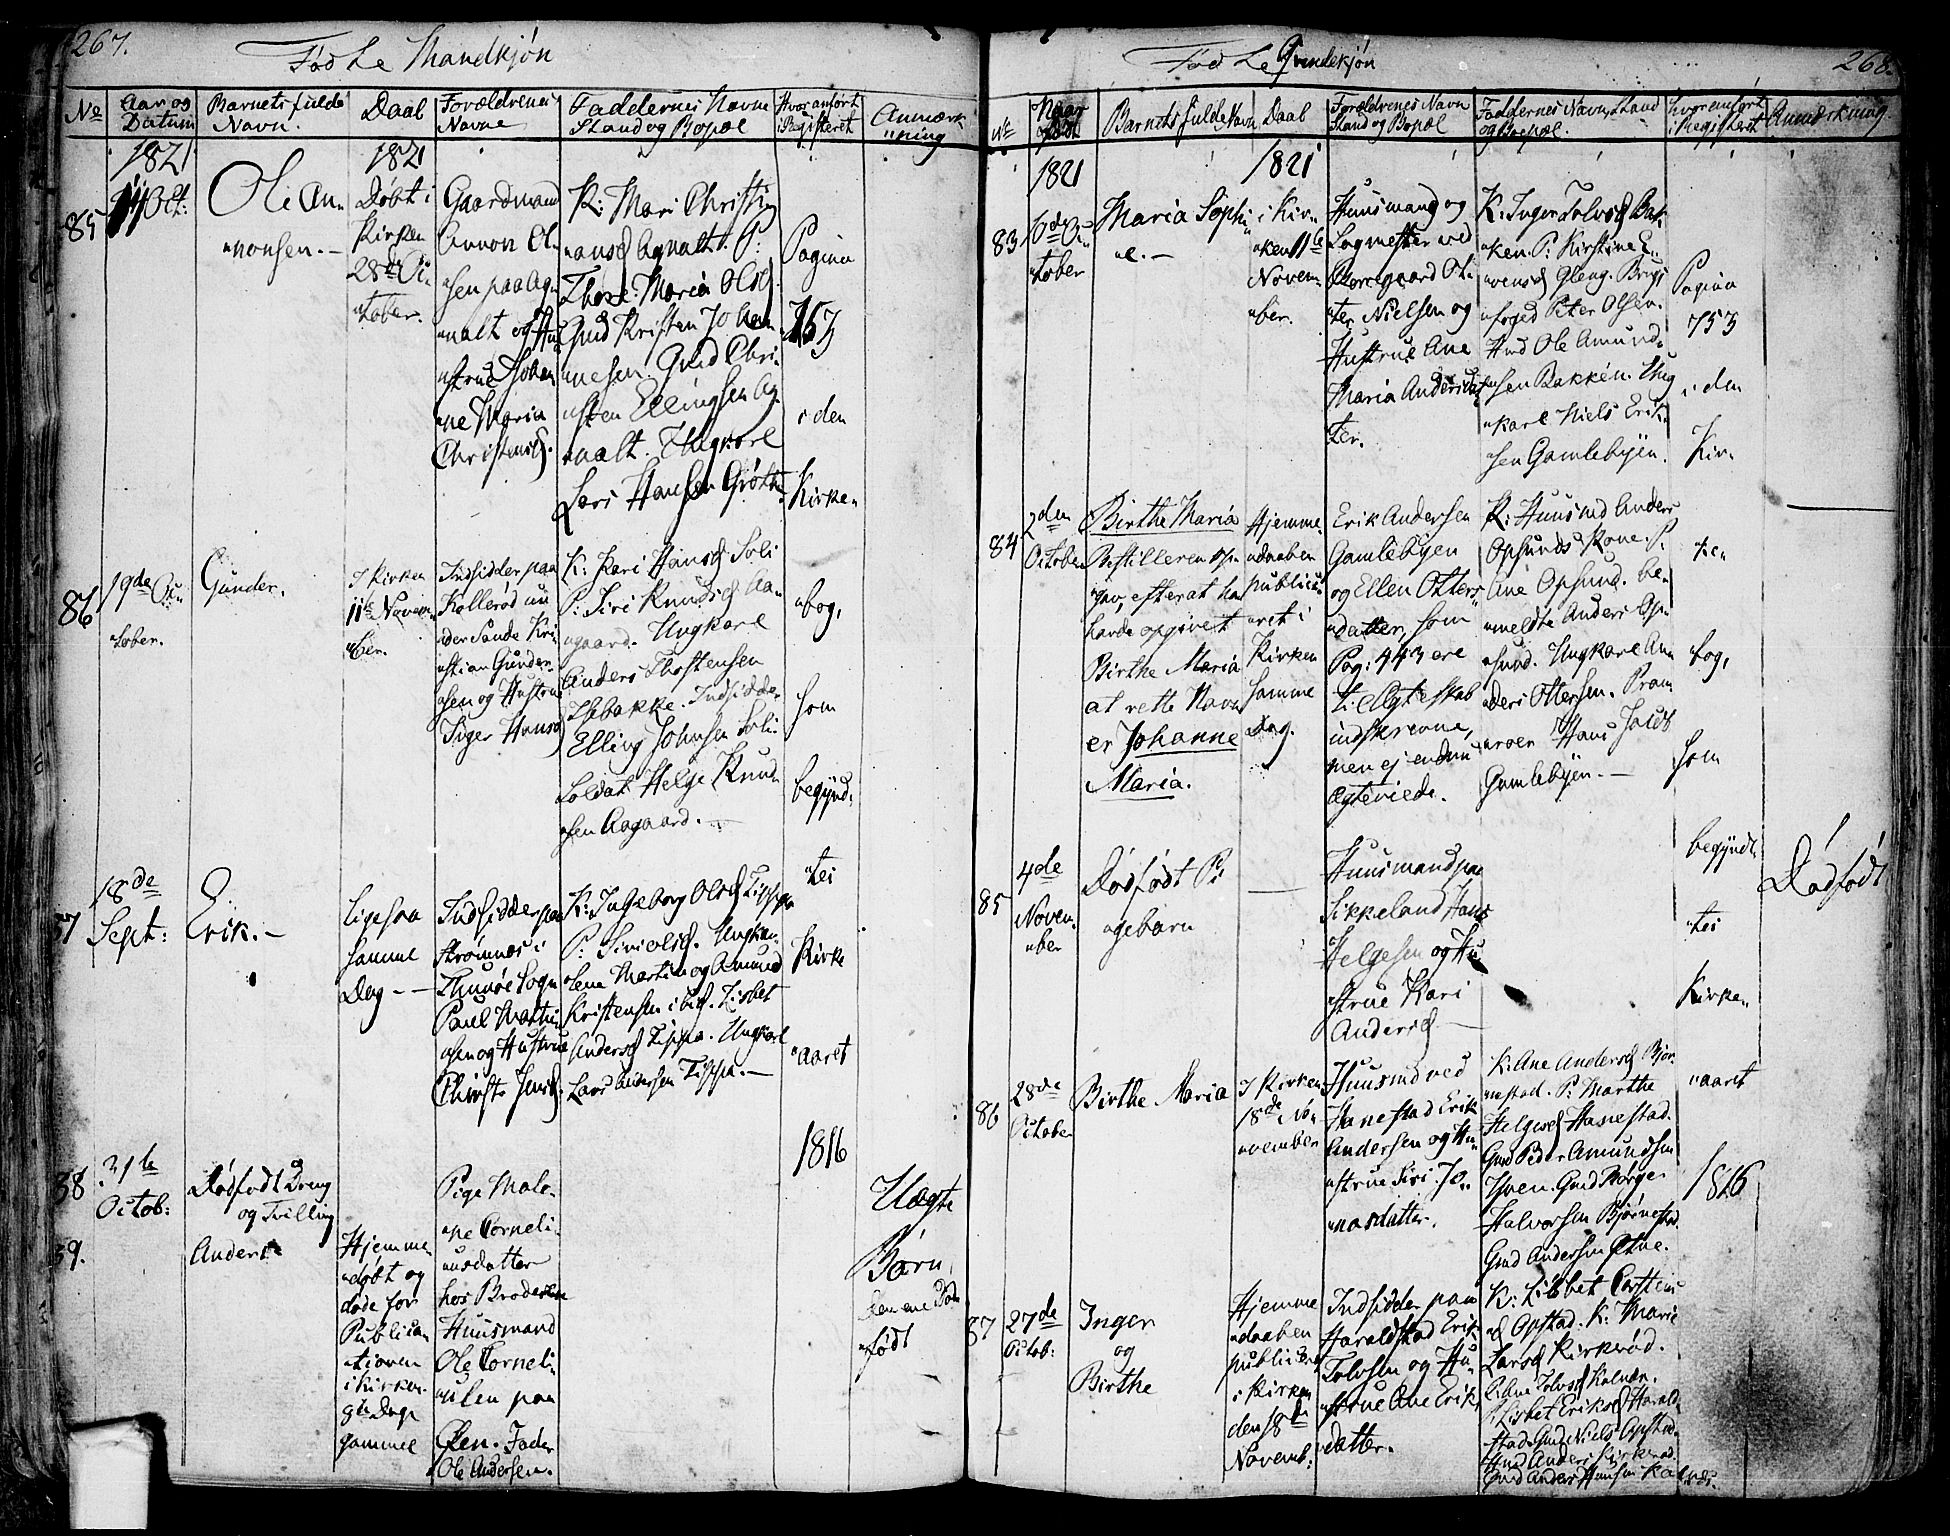 267.
Fødte Mandkjøn
No
Aar og
Datum
Barnets fulde
Navn.
Daab
Forældrenes
Navne
Faddernes Navne
Stand og Bopæl
Hvor anført
i Registeret
Anmærk
ning
1821
1821
85
14 Oct:
Ole Am
monsen. —
Døbt i
Kirken
28de Oc
tober.
Gaardmand
Ammon Ol
sen paa Ag
nalt og Hu
strue Johan
ne Maria
Christensd.
K: Mari Christi
ansd Agnalt. P:
Maria Olsd
Gmd Kristen Johan
nesen. Gmd Chri
sten Ellingsen Ag
nalt. Ungkarl
Lars Hansen
Pagina
753
i den
Kirke
bog,
som
begynd
tes
Kirke
aaret
1816
86
19de Oc
tober.
Gunder.
I Kirken
11te Novem
ber.
Indsidder paa
Kollerød un
der Sande Kri
stian Gunder
sen og Hustru
Inger Hansd
K: Kari Hansd Soli
P: Siri Knudsd Aa
gaard. Ungkarl
Anders Thostensen
Isebakke. Indsidder
Elling Johnsen Soli
Soldat Helge Knud
sen Aagaard. —
87
18de
Sept:
Erik. —
Ligesaa
samme
Dag — —
Indsidder paa
Strømnes i
Thunøe Sogn
Paul Mathi
sen og Hustrue
Christi Jensd.
K: Ingeborg Olsd Tippa
P: Siri Olsd. Ungkar
lene Martin og Amund
Kristensen ibid. Lisbet
Andersd Tippa. Ungkarl
Lars Andersen Tippa. —
88
31te
Octob:
Dødfødt Dreng
og Tvilling
Pige Male
ne Corneli
usdatter
hos Broderen
Huusmand
Ole Corneli
usen paa
Fader
Ole Andersen.
Uægte
Børn
den ene Død
født
89.
Anders
Hjemme
døbt og
døde før
Publica
tionen
i Kirken
gammel
268.
Fødte Qvindekjøn
No
Naar
født
Barnets fulde Navn
Daab
Forældrenes Navn
Stand og Bopæl
Faddernes Navn, Stand
og Bopæl.
Hvor anført
i Registeret
Anmærkning.
1821
1821
83
6de Oc
tober
Maria Sophi
e. —
i Kir
ken 11te
Novem
ber.
Huusmand og
Logmester ved
Borregaard
Nielsen og
Hustrue Ane
Maria Andersdat
ter.
K: Inger Tolvsd Bak
ken. P: Kirstine
Gleng. Brugs
foged Peter Olsen.
Hmd Ole Amund
sen Bakken. Ung
karl Niels Erik
sen Gamlebyen.
Pagina
753
i den
Kir
ke
bog,
som
begyndt
tes
Kirke
aaret
1816
84
2den
October
Birthe Maria
Bestilleren
gav, efterat ha
havde opgivet
Birthe Maria
at rette Navn
er Johanne
Maria.
Hjemme
daaben
publicu
ret i
Kirken
samme
Dag.
Erik Andersen
Gamlebyen
og Ellen Otters
datter, som
Pag: 443 ere
til Ægteskab
indskrevne,
men ej endnu
Ægteviede.
K: Huusmd Anders
Opsunds Kone. P.
Ane Opsund. be
meldte Anders Op
sund. Ungkarl An
ders Ottersen. Pram
roer Hans Jacobs
Gamlebyen. —
85
4de
Novem
ber
Dødfødt Pi
gebarn
—
Huusmand paa
Sikkeland Hans
Helgesen og Hu
strue Kari
Andersd —
Dødfødt
86
28de
October
Birthe Maria
I Kirken
18de No
vember
Huusmd ved
Hanestad Erik
Andersen og Hu
strue Siri Jo
nasdatter.
K: Ane Andersd Bjør
nestad. P: Marthe
Helgesd Hanestad.
Gmd Peder Amundsen
Gmd Børge
Halvorsen Bjørnestad.
Gmd Andersen
87
27de
Octob:
Inger
og
Birthe
Hjemme
daaben
publiceret
i Kirken
den 18de
Novemb:
Indsidder paa
Haraldstad Erik
Tolvsen og Hu
strue Ane Eriks
datter.
K: Lisbet Torstens
d Opstad. K: Marie
Larsd Kirkerød.
Tolvsd Kalnæs.
Lisbet Eriksd Harald
stad. Gmd Niels Opstad.
Hmd Anders Kirkerød.
Gmd Anders Hansen Kalnæs.